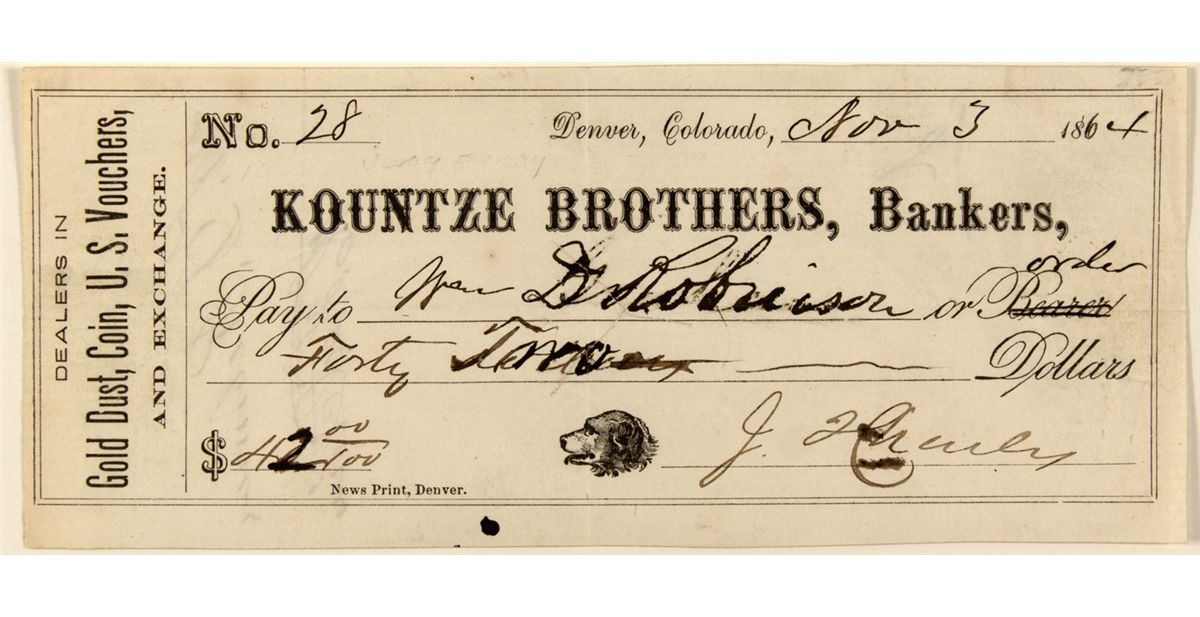 DEALERS IN
Gold Dust, Coin, U. S. Vouchers,
AND EXCHANGE.
No. 28 Denver, Colorado, Nov 3 1864
KOUNTZE BROTHERS, Bankers,
order
Pay to Wm D Robinson or Bearer
Forty Dollars
$ 42 00/100 J.
News Print, Denver.